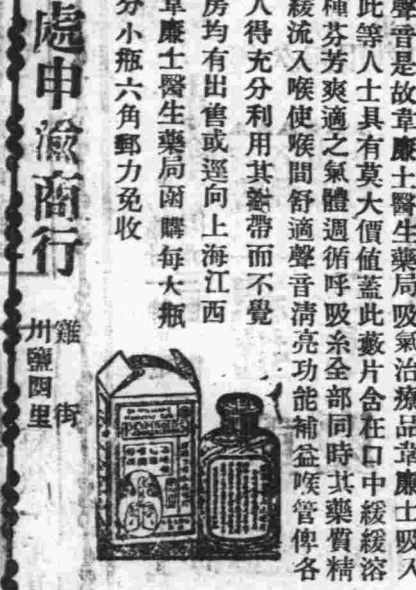 聲音是故韋廉士醫生藥局吸氣治療品韋廉士吸入
此等人士具有莫大價值蓋此藥片含在口中緩緩溶
種芬芳爽適之氣體週循呼吸系全部同時其藥質精
緩流入喉使喉間舒適聲音淸亮功能補益喉管俾各
人得充分利用其聲帶而不覺
房均有出售或逕向上海江西
韋廉士醫生藥局函購每大瓶
分小瓶六角郵力免收
處申渝商行
雞街
州鹽四里